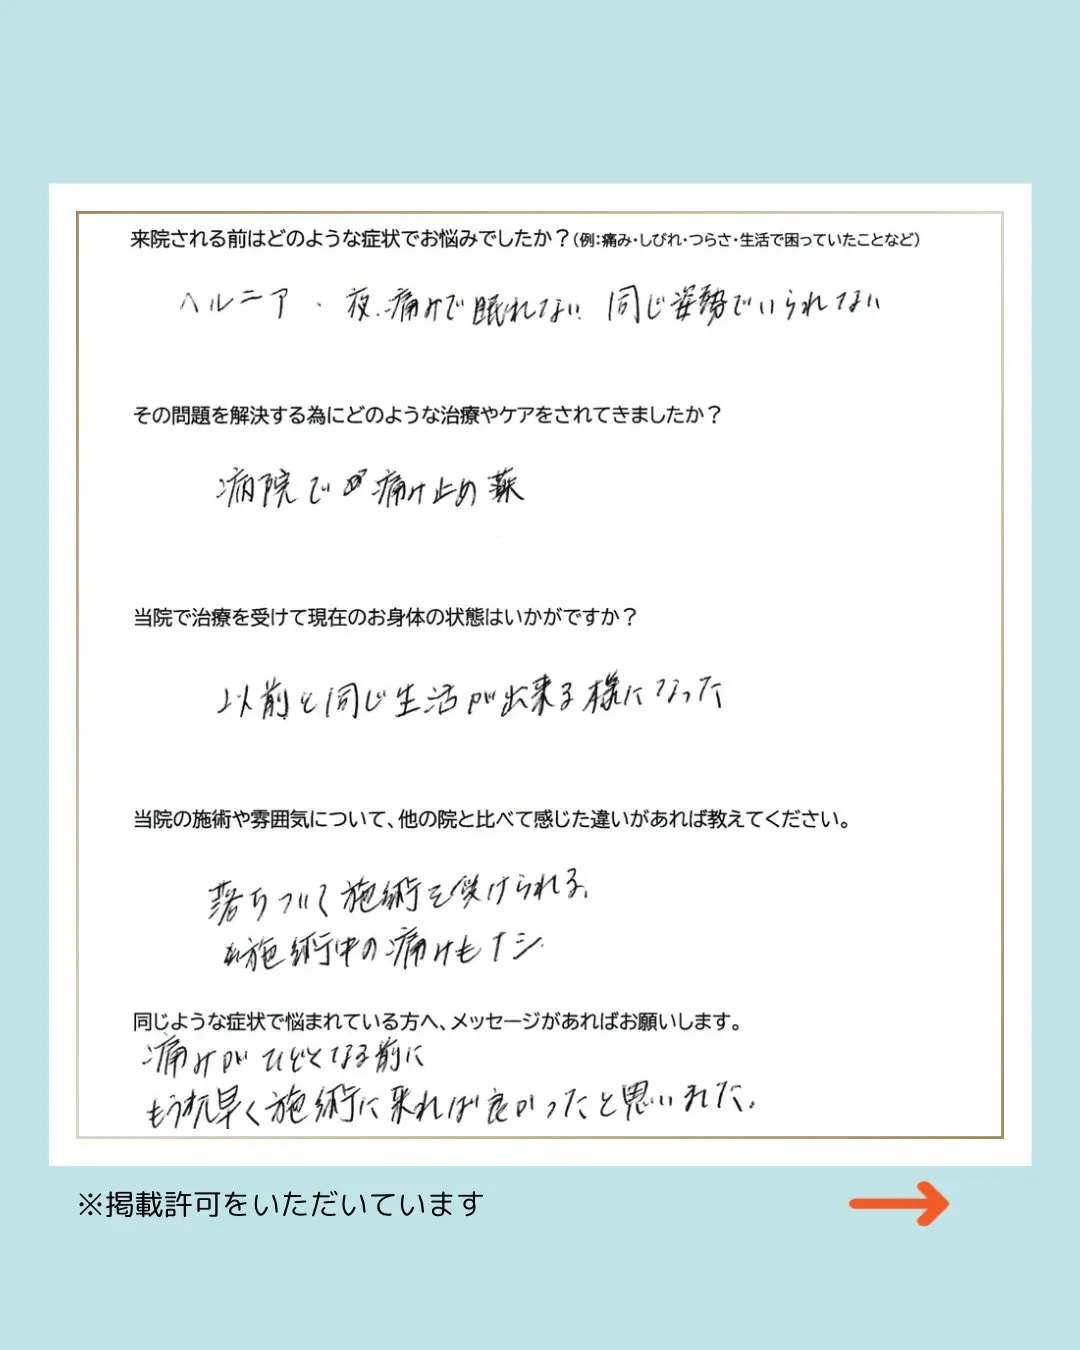 来院される前はどのような症状でお悩みでしたか？(例:痛み・しびれ・つらさ・生活で困っていたことなど)
ヘルニア・夜、痛みで眠れない 同じ姿勢でいられない
その問題を解決する為にどのような治療やケアをされてきましたか？
病院で痛み止め薬
当院で治療を受けて現在のお身体の状態はいかがですか？
以前と同じ生活が出来る様になった
当院の施術や雰囲気について、他の院と比べて感じた違いがあれば教えてください。
落ちついて施術を受けられる、
施術中の痛みもナシ
同じような症状で悩まれている方へ、メッセージがあればお願いします。
痛みがひどくなる前に
もう 早く施術に来れば良かったと思いました。
※掲載許可をいただいています